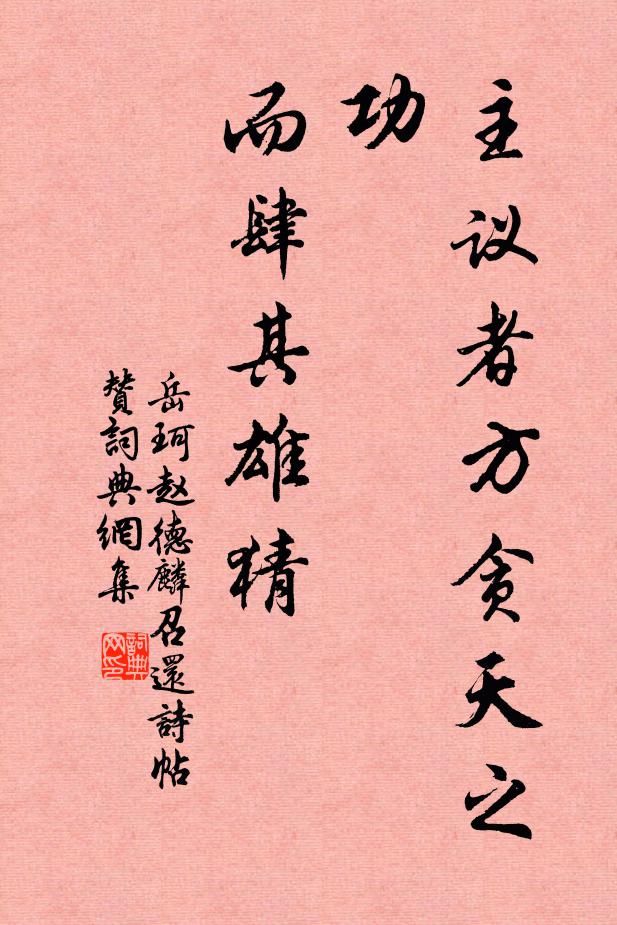 主议者方贪天之
功
而肆其雄猜
岳珂赵德麟召還詩帖
赞詞典網集
詞典
网印